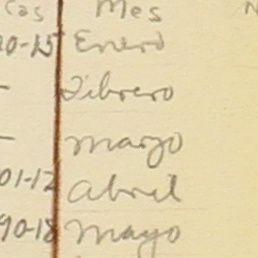 cas Mes
90-15 Enero
- Febrero
- Marzo
01-12 Abril
90-18 Mayo